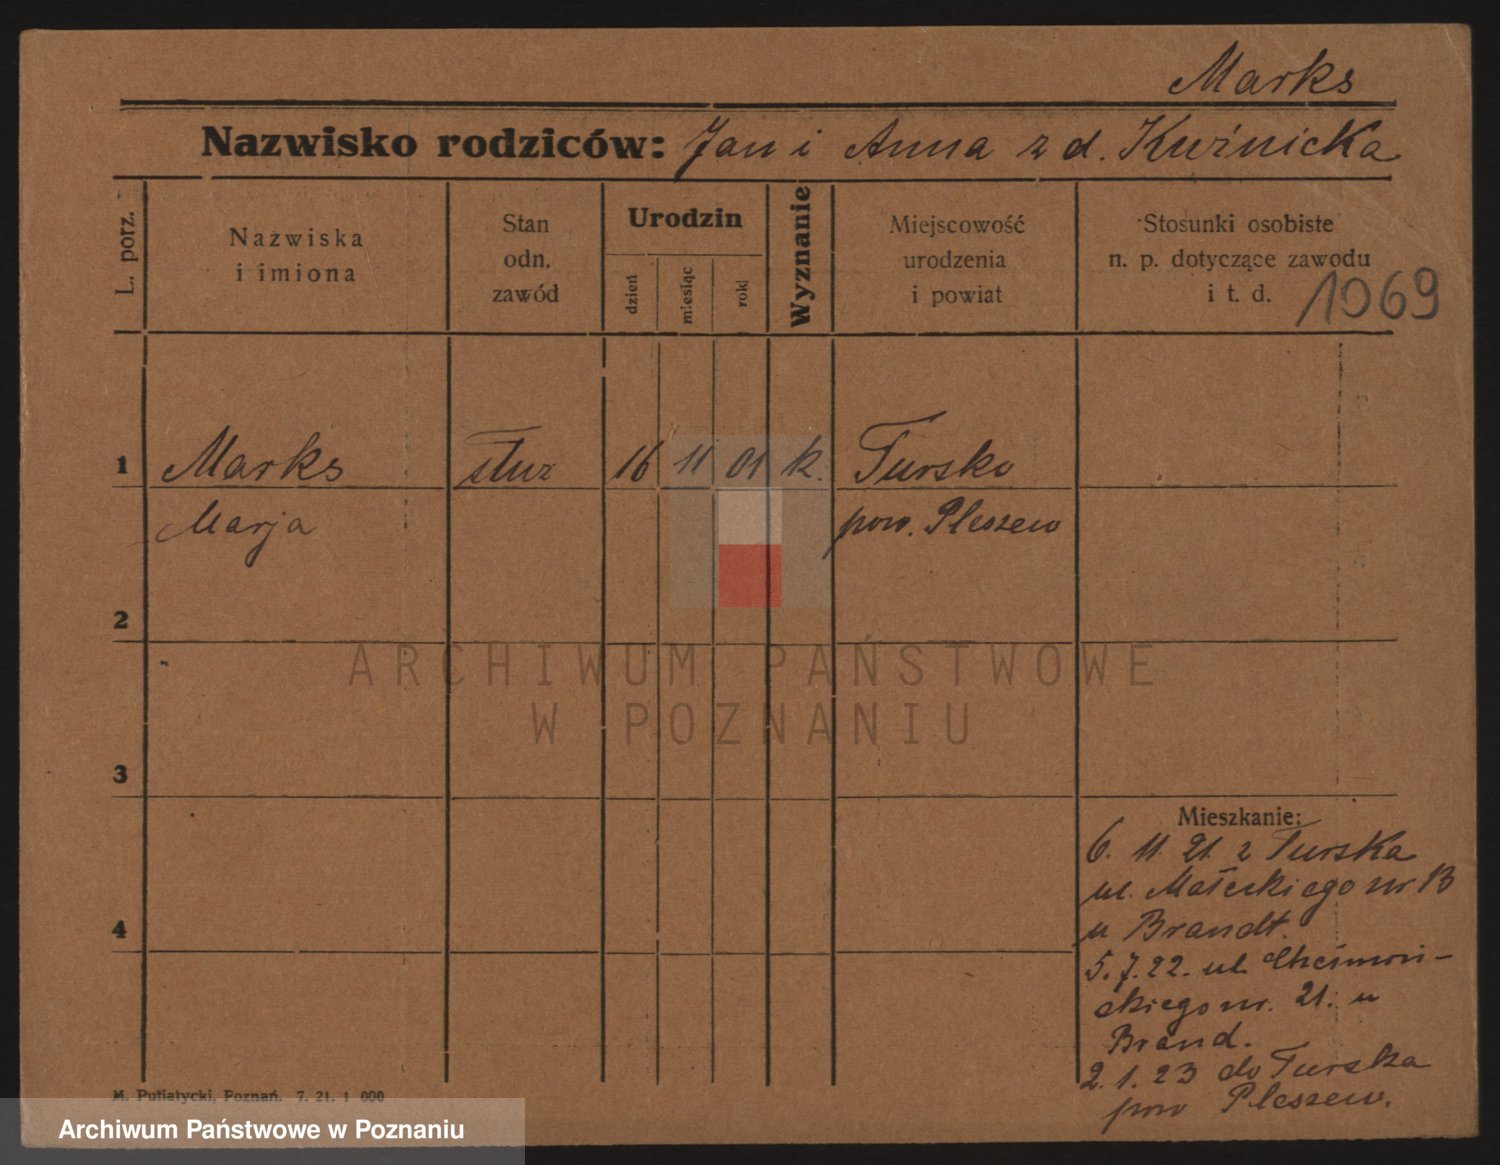 Marks
Nazwisko rodziców: Jan i Anna z d. Kuźnicka
L. porz.
Nazwiska
i imiona
Stan
odn.
zawód
Urodzin
dzień
miesiąc
rok
Wyznanie
Miejscowość
urodzenia
i powiat
Stosunki osobiste
n. p. dotyczące zawodu
i t. d.
1069
1 Marks służ 16 11 01 k. Tursko
Marja pow. Pleszew
2
3
4
Mieszkanie:
6. 11. 21. z Turska
ul. Małeckiego nr 13
u Brandt.
5. 7. 22. ul.
ckiego nr. 21. u
Brand.
2. 1. 23 do Turska
pow Pleszew.
M. Putiatycki, Poznań. 7. 21. 1 000
ARCHIWUM PAŃSTWOWE
W POZNANIU
Archiwum Państwowe w Poznaniu